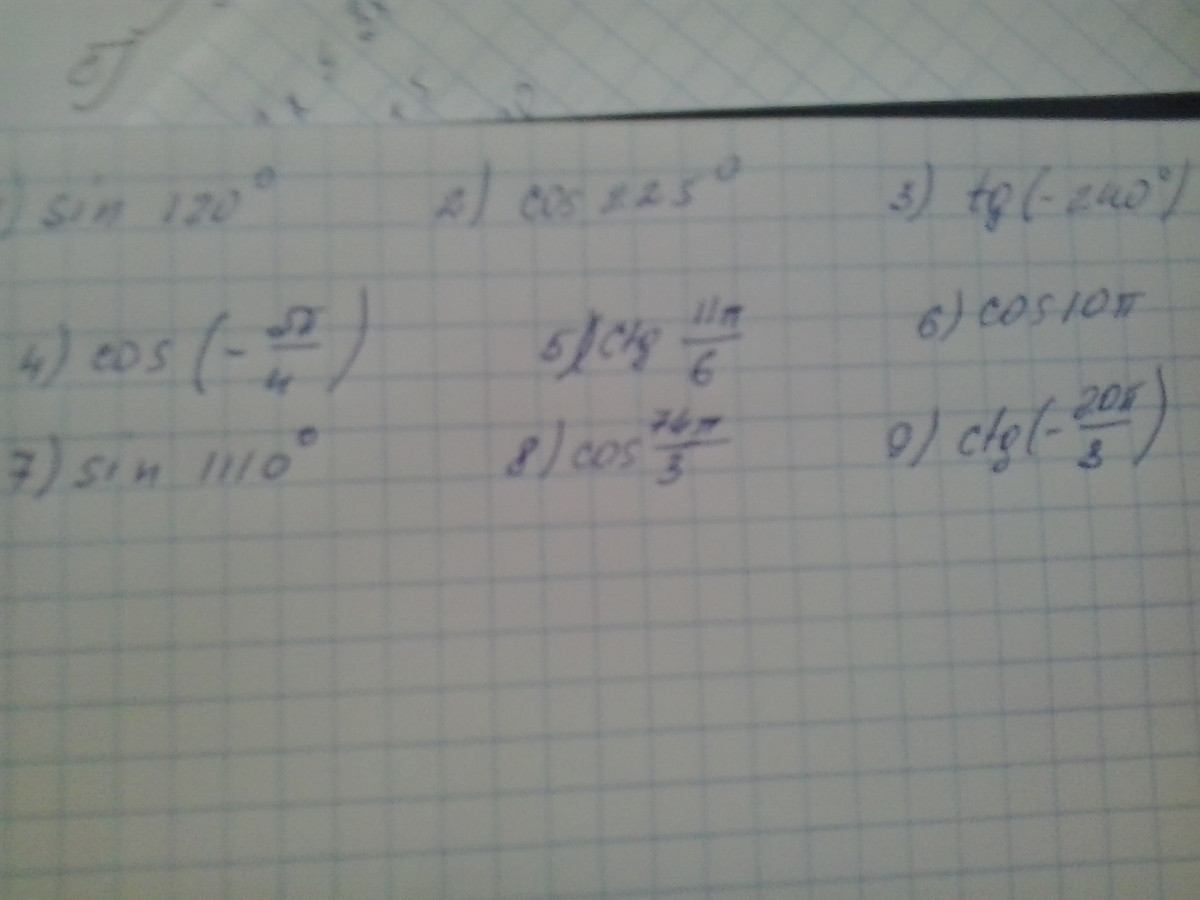 ) sin 120° 2) cos 225° 3) tg(-240°)
4) cos (- 5π/4) 5) ctg 11π/6 6) cos 10π
7) sin 1110° 8) cos 74π/3 9) ctg(- 20π/3)